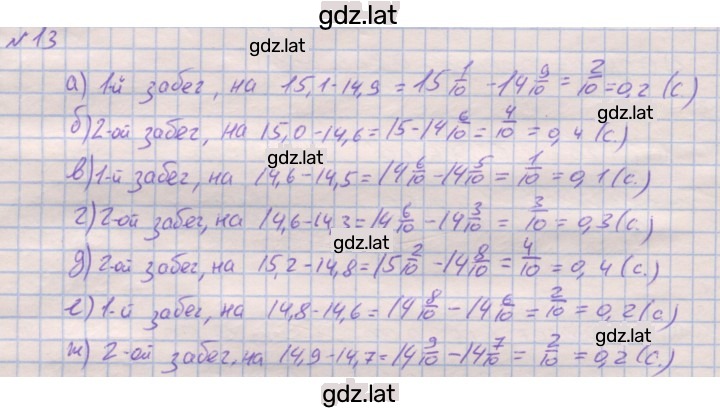 gdz.lat
№13
gdz.lat
а) 1-й забег, на 15,1-14,9 = 15 1/10 - 14 9/10 = 2/10 = 0,2 (с)
gdz.lat
б) 2-ой забег, на 15,0-14,6 = 15-14 6/10 = 4/10 = 0,4 (с.)
gdz.lat
в) 1-й забег, на 14,6-14,5 = 14 6/10 - 14 5/10 = 1/10 = 0,1 (с.)
г) 2-ой забег, на 14,6-14,3 = 14 6/10 - 14 3/10 = 3/10 = 0,3 (с.)
gdz.lat
д) 2-ой забег, на 15,2-14,8 = 15 2/10 - 14 8/10 = 4/10 = 0,4 (с.)
е) 1-й забег, на 14,8-14,6 = 14 8/10 - 14 6/10 = 2/10 = 0,2 (с.)
gdz.lat
ж) 2-ой забег, на 14,9-14,7 = 14 9/10 - 14 7/10 = 2/10 = 0,2 (с.)
gdz.lat